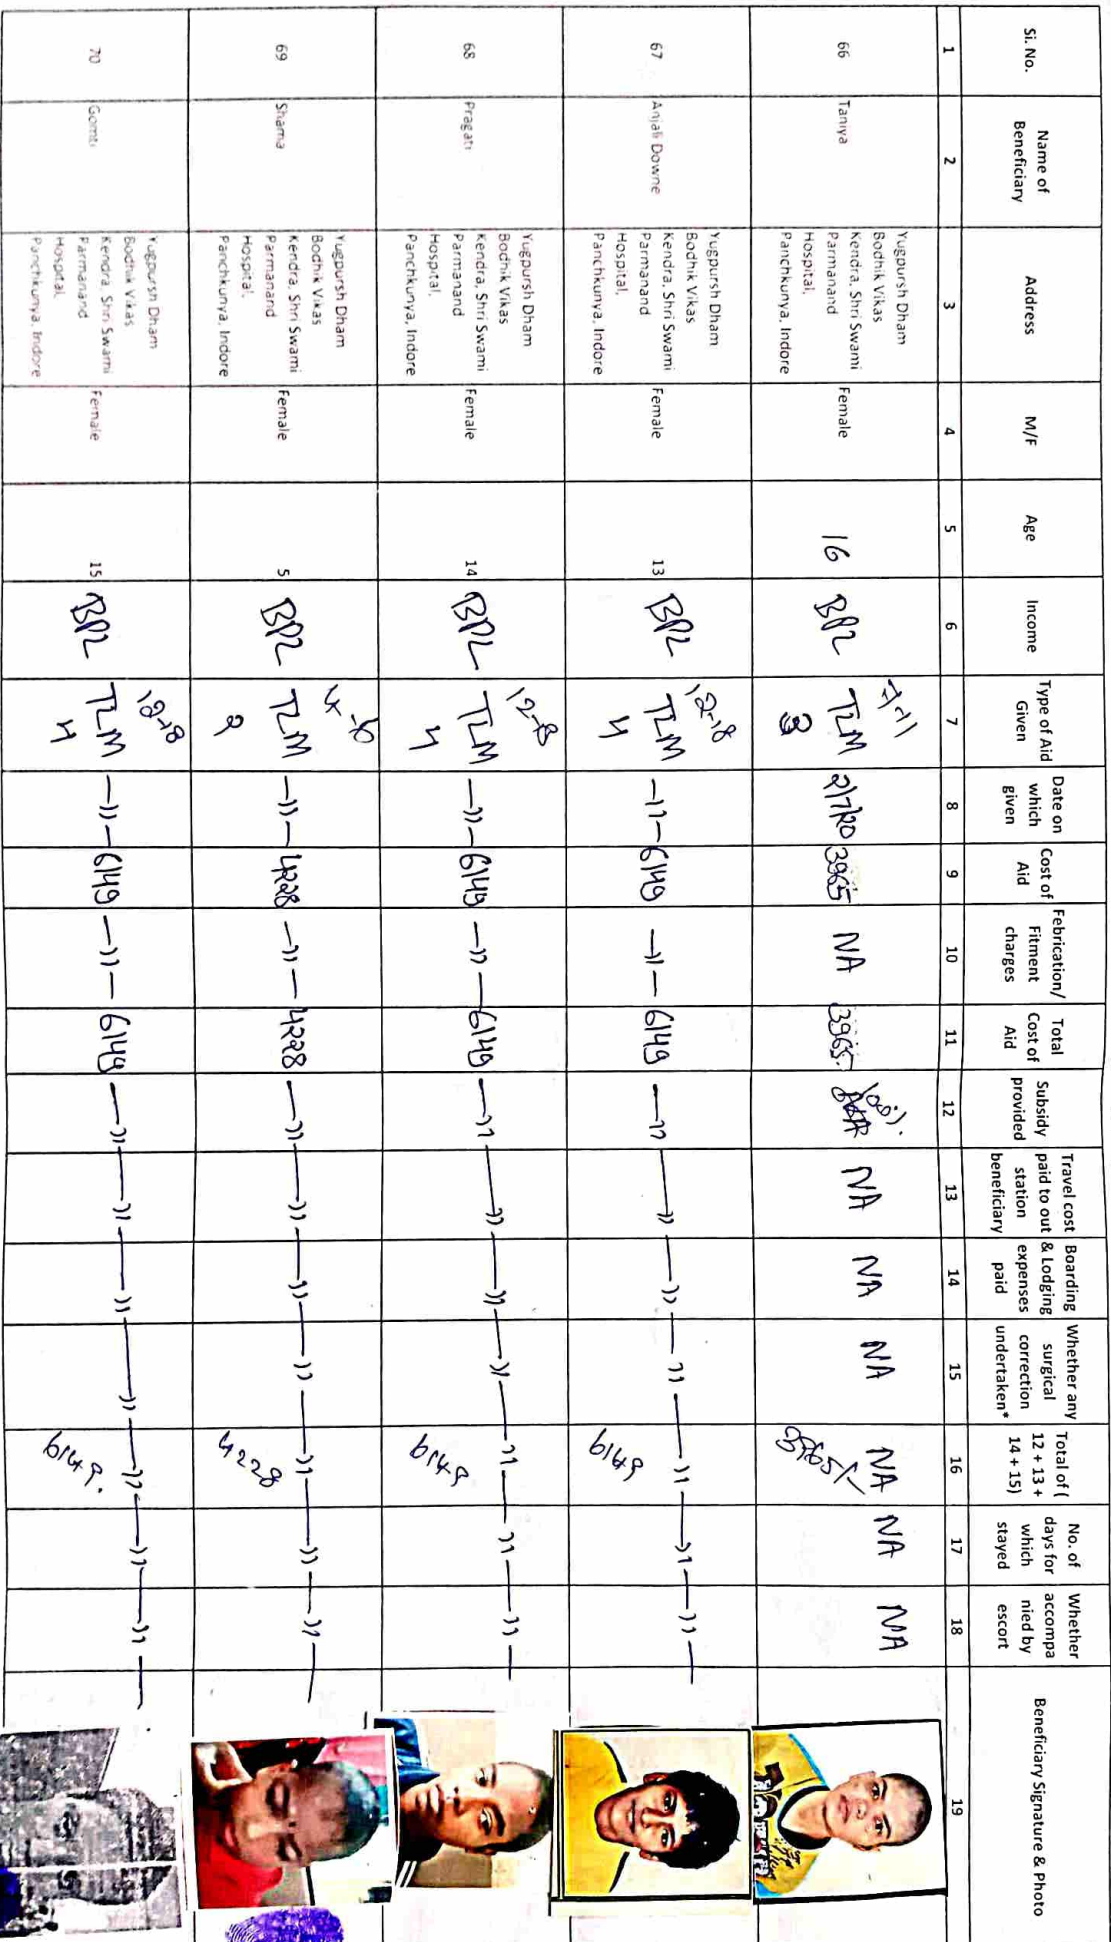 Si. No.
Name of
Beneficiary
Address
M/F
Age
Income
Type of Aid
Given
Date on
which
given
Cost of
Aid
Febrication/
Fitment
charges
Total
Cost of
Aid
Subsidy
provided
Travel cost
paid to out
station
beneficiary
Boarding
& Lodging
expenses
paid
Whether any
surgical
correction
undertaken*
Total of (
12 + 13 +
14 + 15)
No. of
days for
which
stayed
Whether
accompa
nied by
escort
Beneficiary Signature & Photo
1
2
3
4
5
6
7
8
9
10
11
12
13
14
15
16
17
18
19
66
Taniya
Yugpursh Dham
Bodhik Vikas
Kendra, Shri Swami
Parmanand
Hospital,
Panchkunya, Indore
Female
16
BPL
7-11
TLM
3
2/7/20
3965
NA
3965
100%.
NA
NA
NA
NA
3965/-
NA
NA
67
Anjali Downe
Yugpursh Dham
Bodhik Vikas
Kendra, Shri Swami
Parmanand
Hospital,
Panchkunya, Indore
Female
13
BPL
12-18
TLM
4
—"—
6149
—"—
6149
—"—
—"—
—"—
—"—
—"—
6149
—"—
—"—
68
Pragati
Yugpursh Dham
Bodhik Vikas
Kendra, Shri Swami
Parmanand
Hospital,
Panchkunya, Indore
Female
14
BPL
12-18
TLM
4
—"—
6149
—"—
6149
—"—
—"—
—"—
—"—
—"—
6149
—"—
—"—
69
Shama
Yugpursh Dham
Bodhik Vikas
Kendra, Shri Swami
Parmanand
Hospital,
Panchkunya, Indore
Female
5
BPL
TLM
2
—"—
4228
—"—
4228
—"—
—"—
—"—
—"—
—"—
4228
—"—
—"—
70
Gomti
Yugpursh Dham
Bodhik Vikas
Kendra, Shri Swami
Parmanand
Hospital,
Panchkunya, Indore
Female
15
BPL
12-18
TLM
4
—"—
6149
—"—
6149
—"—
—"—
—"—
—"—
—"—
6149.
—"—
—"—